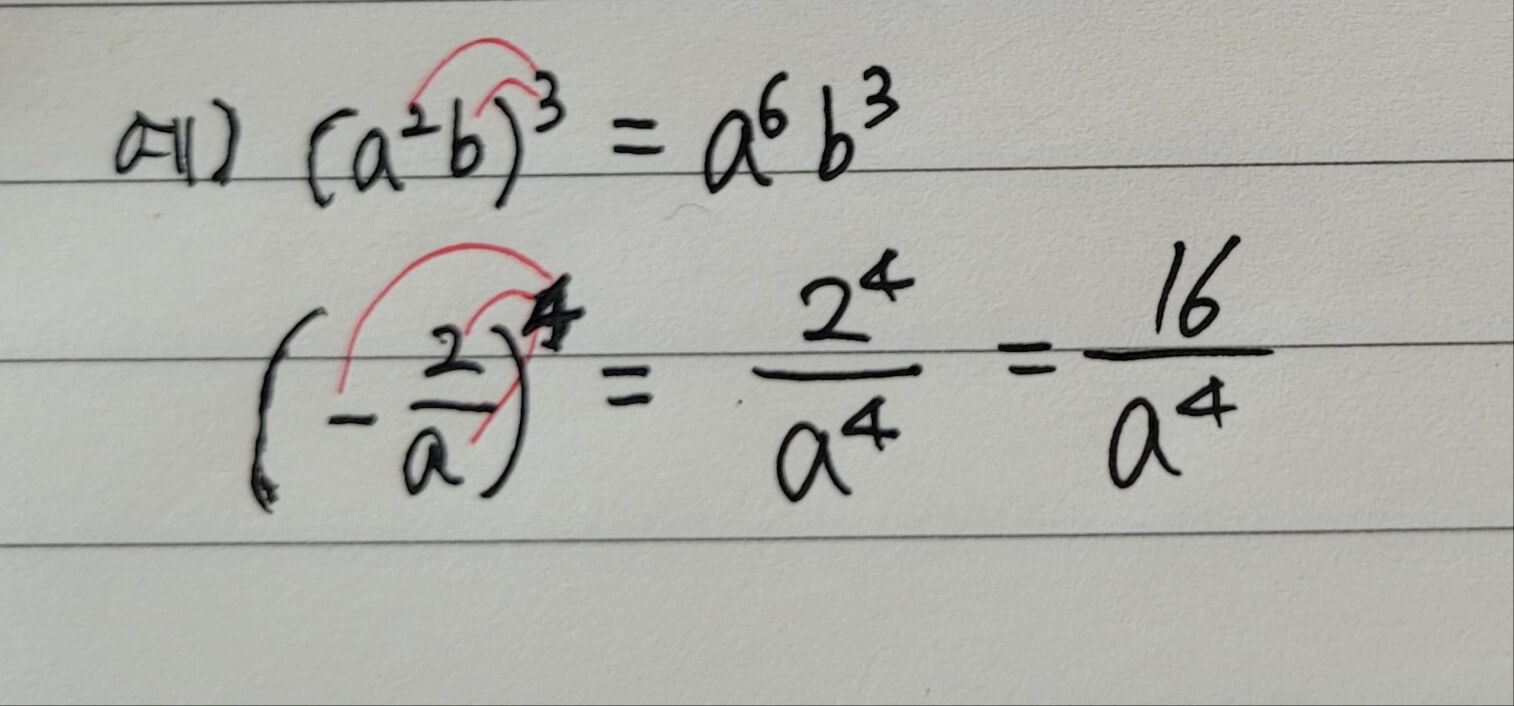 예) (a²b)³ = a⁶b³
(-2/a)⁴ = 2⁴/a⁴ = 16/a⁴